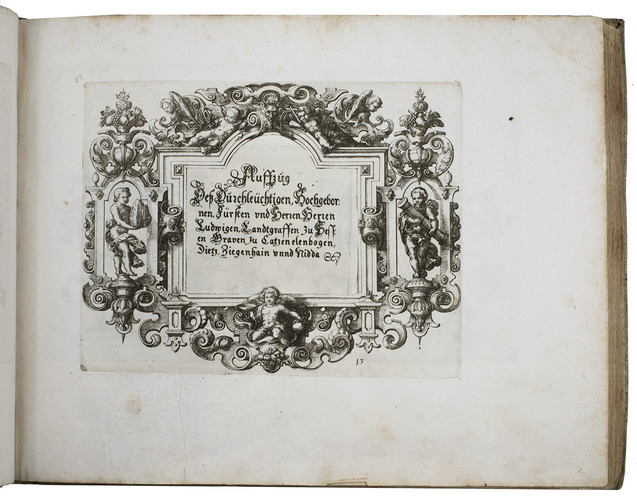 Auffzüg
Deß Durchleüchtigen, Hochgebor⸗
nen, Fürsten vnd Herren, Herren
Ludwigen, Landtgraffen zu Hess⸗
en Graven zu Catzenelenbogen,
Dietz, Ziegenhain vnnd Nidda ꝛc
13